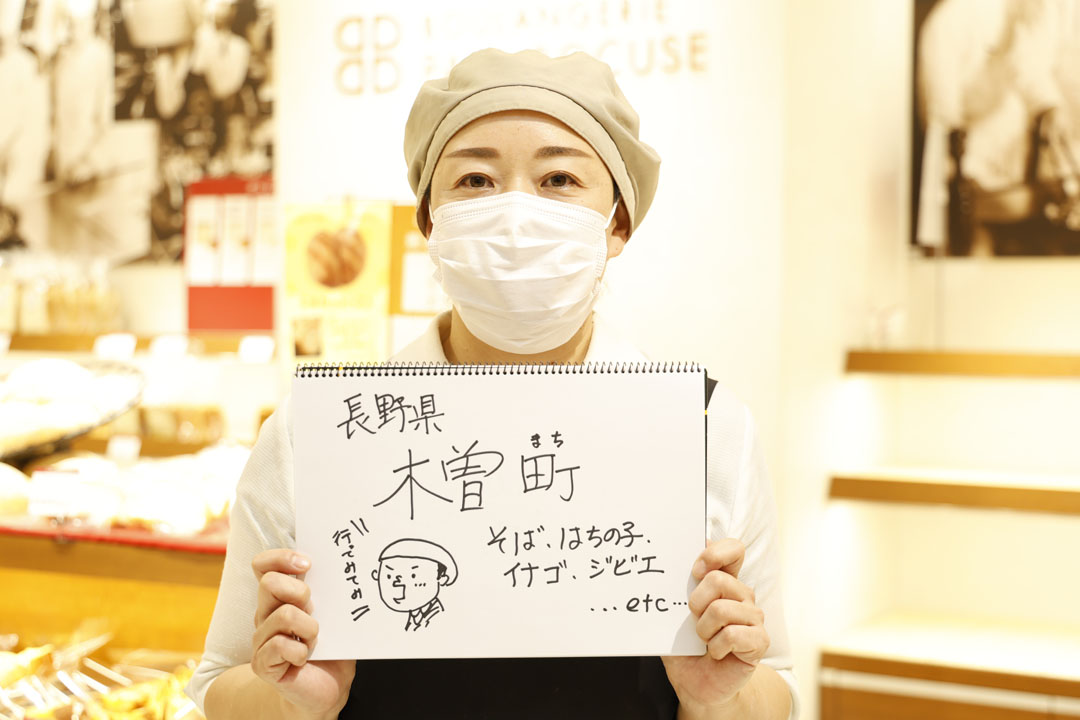 BOULANGERIE
CUSE
長野県
木曽町
まち
そば、はちの子、
イナゴ、ジビエ
...etc...
行ってみてみ